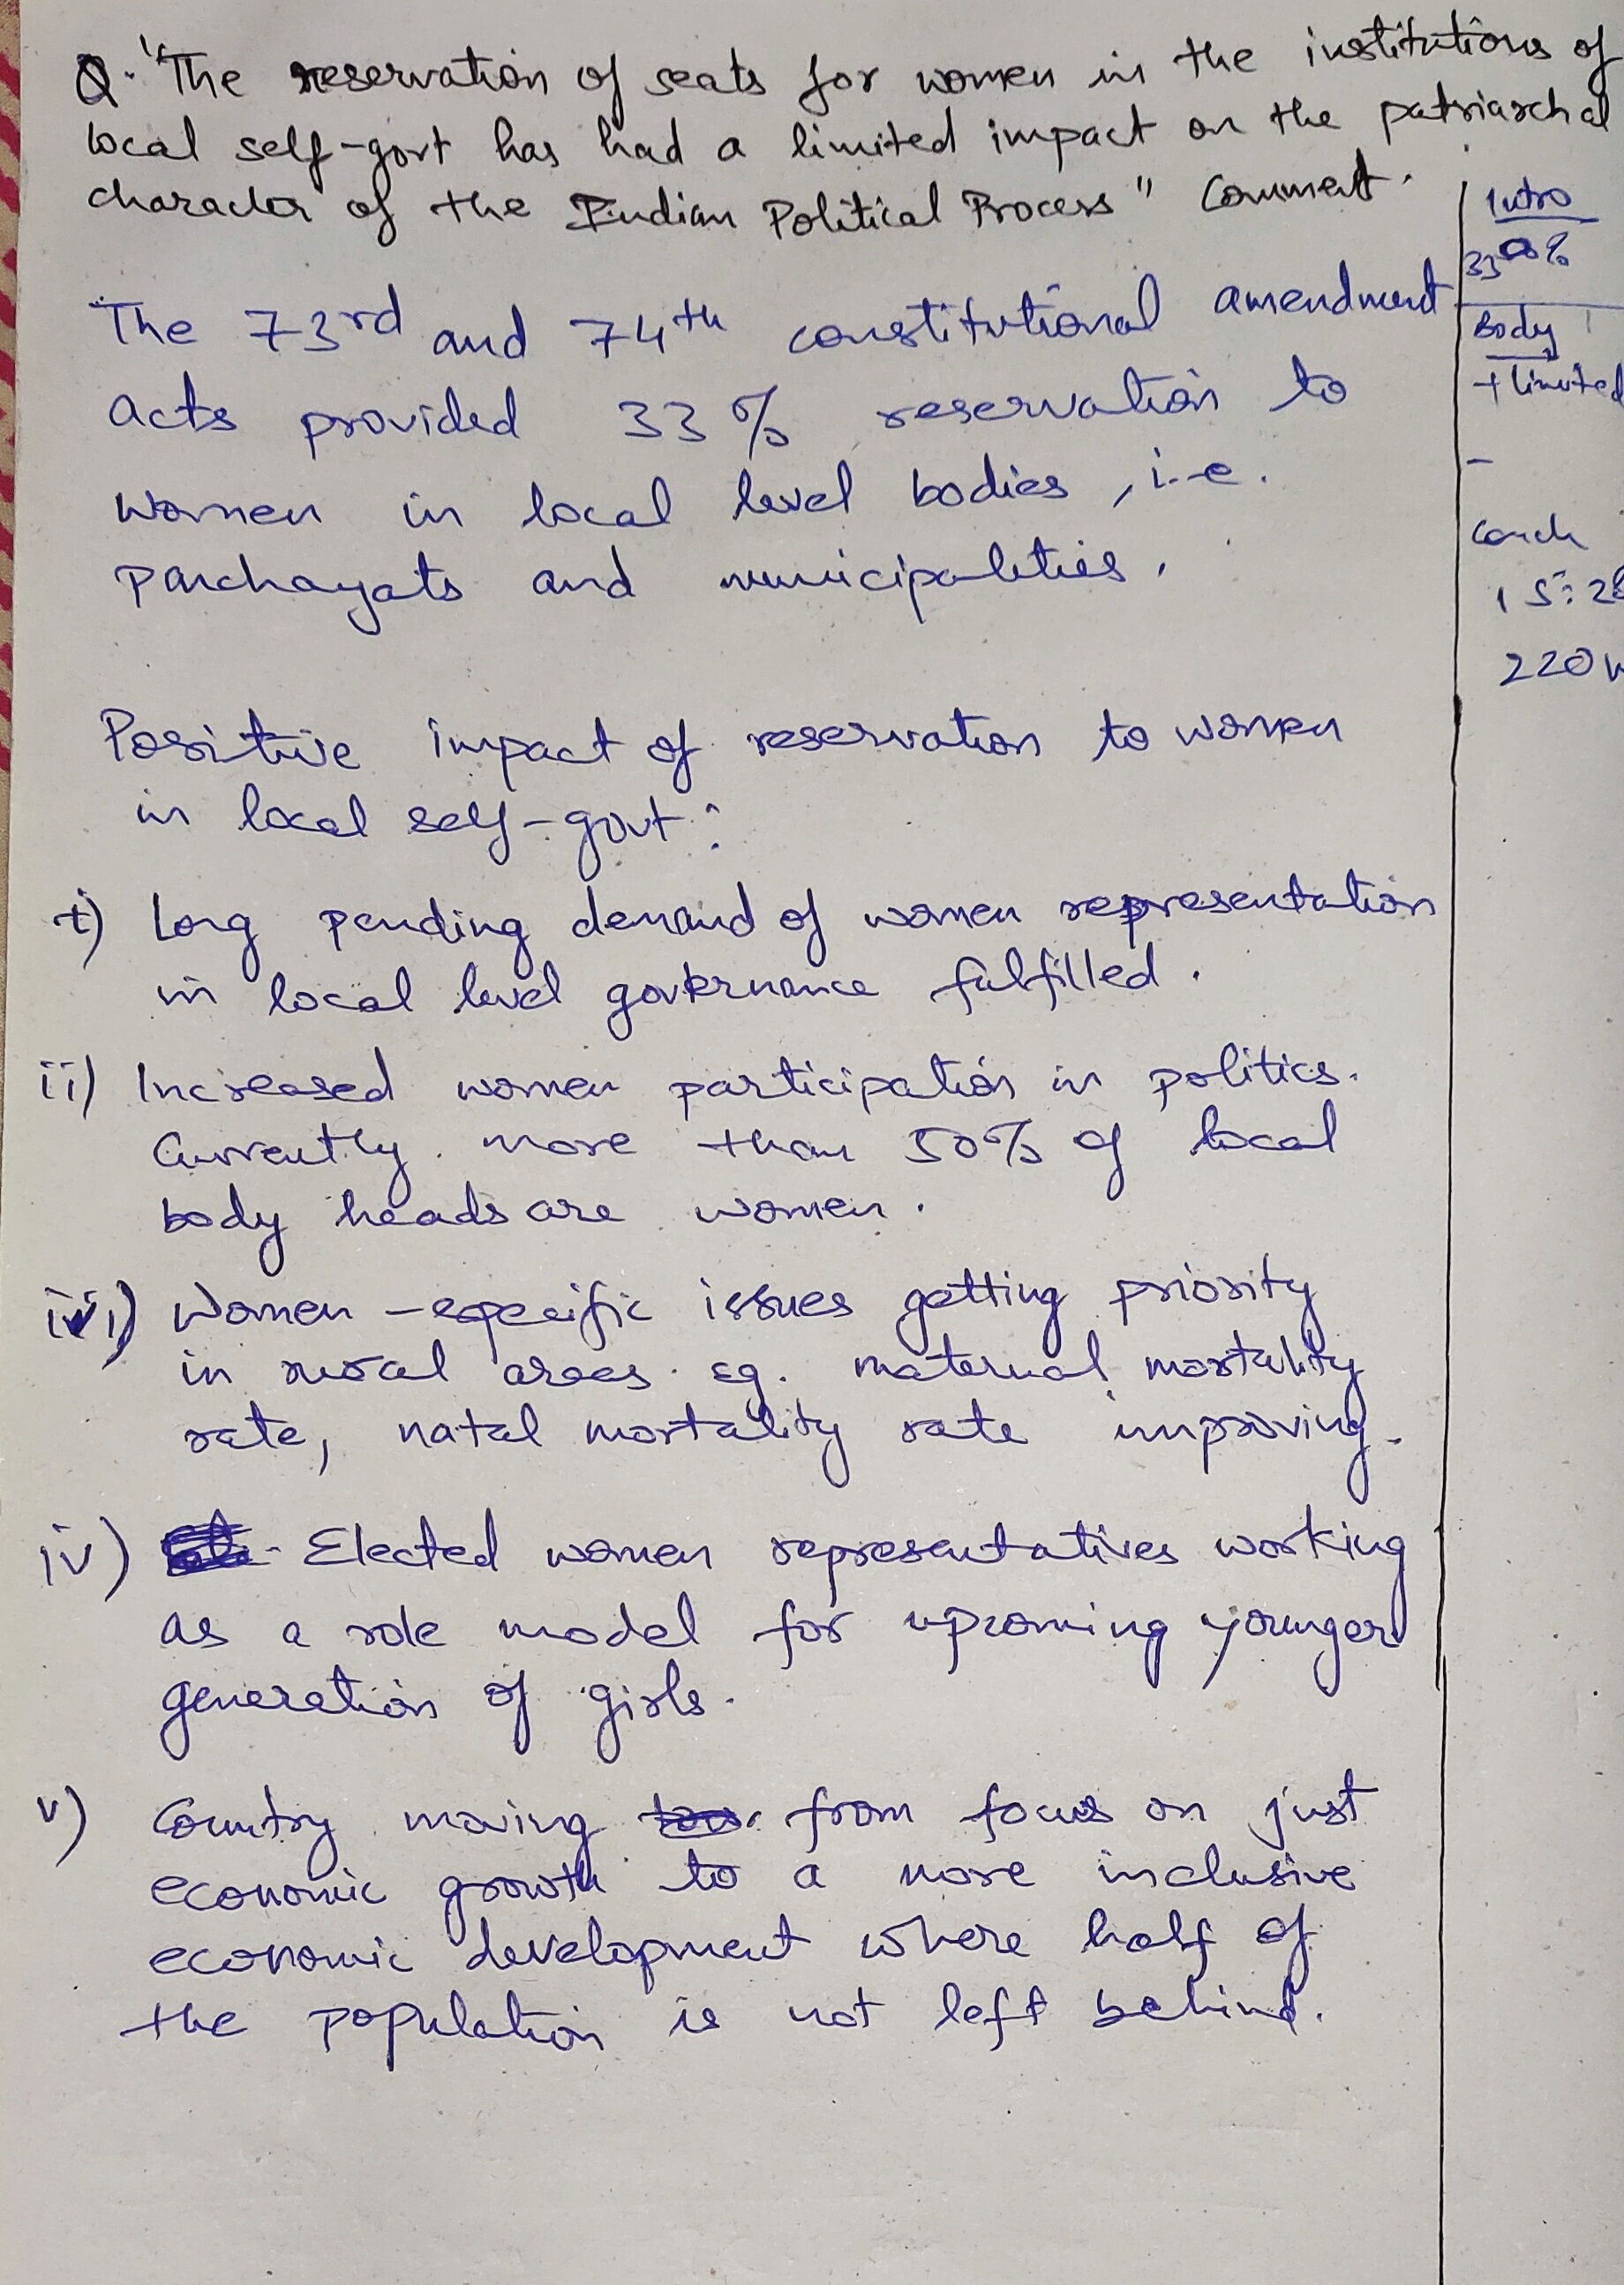 Q. "The reservation of seats for women in the institutions of
local self-govt has had a limited impact on the patriarchal
character of the Indian Political Process" Comment.
The 73rd and 74th constitutional amendment
acts provided 33% reservation to
women in local level bodies, i.e.
panchayats and municipalities.
Positive impact of reservation to women
in local self-govt:
i) Long pending demand of women representation
in local level governance fulfilled.
ii) Increased women participation in politics.
Currently more than 50% of local
body heads are women.
iii) Women-specific issues getting priority
in rural areas. eg. maternal mortality
rate, natal mortality rate improving.
iv) Elected women representatives working
as a role model for upcoming younger
generation of girls.
v) Country moving from focus on just
economic growth to a more inclusive
economic development where half of
the population is not left behind.
Intro
33%
Body
+ limited
-
220 w